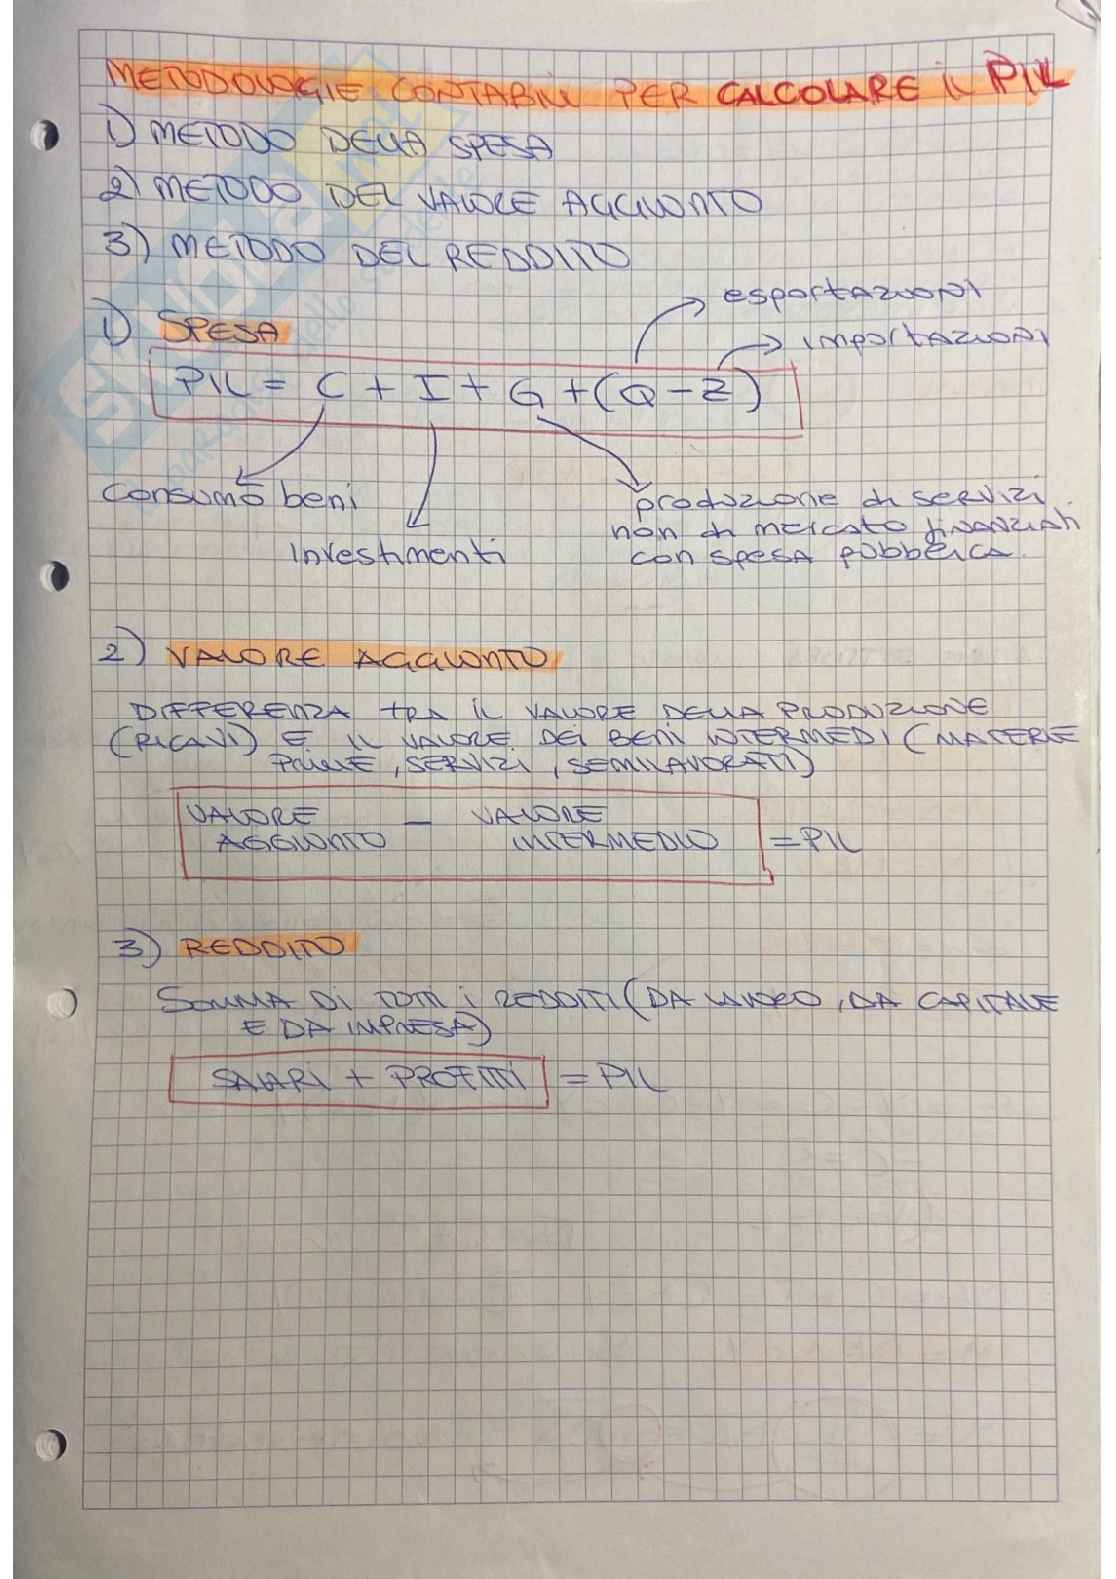 METODOLOGIE CONTABILI PER CALCOLARE IL PIL
1) METODO DELLA SPESA
2) METODO DEL VALORE AGGIUNTO
3) METODO DEL REDDITO
esportazioni
1) SPESA
importazioni
PIL = C + I + G + (Q - Z)
Consumo beni
produzione di servizi
non di mercato finanziati
Investimenti
con spesa pubblica.
2) VALORE AGGIUNTO
DIFFERENZA TRA IL VALORE DELLA PRODUZIONE
(RICAVI) E IL VALORE DEI BENI INTERMEDI (MATERIE
PRIME, SERVIZI, SEMILAVORATI)
VALORE - VALORE
AGGIUNTO INTERMEDIO = PIL
3) REDDITO
SOMMA DI TUTTI i REDDITI (DA LAVORO, DA CAPITALE
E DA IMPRESA)
SALARI + PROFITTI = PIL